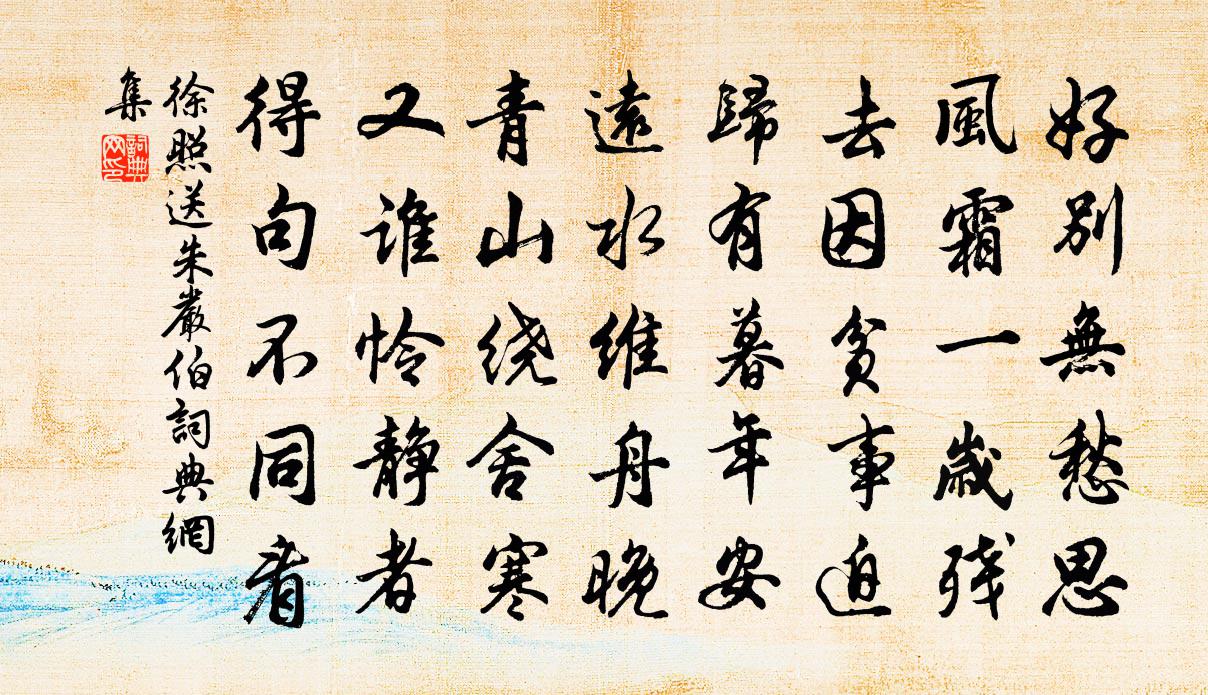 好別無愁思
風霜一歲残
去因貧事迫
歸有暮年安
遠水維舟晚
青山绕舍寒
又谁怜静者
得句不同看
徐照送朱嚴伯詞典網
集
詞典
网印